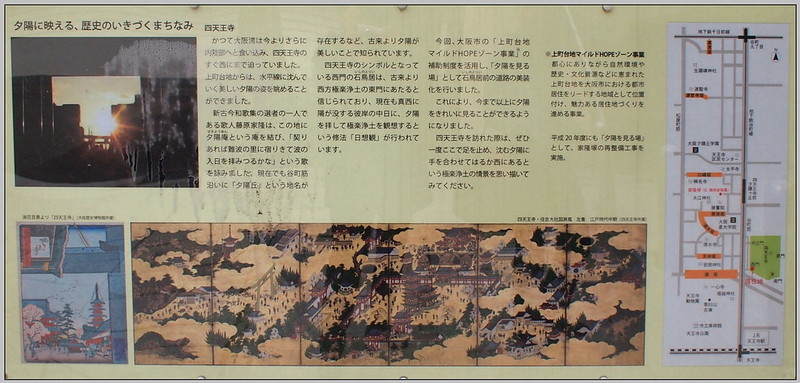 夕陽に映える、歴史のいきづくまちなみ
四天王寺
かつて大阪湾は今よりさらに
内陸部へと食い込み、四天王寺の
すぐ西にまで迫っていました。
上町台地からは、水平線に沈んで
いく美しい夕陽の姿を眺めることが
できました。
新古今和歌集の選者の一人で
ある歌人藤原家隆は、この地に
夕陽庵という庵を結び、「契り
あれば難波の里に宿りきて波の
入日を拝みつるかな」という歌
を詠みました。現在でも谷町筋
沿いに「夕陽丘」という地名が
存在するなど、古来より夕陽が
美しいことで知られています。
四天王寺のシンボルとなって
いる西門の石鳥居は、古来より
西方極楽浄土の東門にあたると
信じられており、現在も真西に
陽が没する彼岸の中日に、夕陽
を拝して極楽浄土を観想すると
いう修法「日想観」が行われて
います。
今回、大阪市の「上町台地
マイルドHOPEゾーン事業」の
補助制度を活用し、「夕陽を見る
場」として石鳥居前の道路の美装
化を行いました。
これにより、今まで以上に夕陽
をきれいに見ることができるよう
になりました。
四天王寺を訪れた際は、ぜひ
一度ここで足を止め、沈む夕陽に
手を合わせてはるか西にある
という極楽浄土の情景を思い描いて
みてください。
※上町台地マイルドHOPEゾーン事業
都心にありながら自然環境や
歴史・文化資源などに恵まれた
上町台地を大阪市における都市
居住をリードする地域として位置
付け、魅力ある居住地づくりを
進める事業。
平成20年度にも「夕陽を見る場」
として、家隆塚の再整備工事を
実施。
浪花百景より「四天王寺」
四天王寺・住吉大社図屏風 左隻 江戸時代中期
地下鉄千日前線
生國魂神社
大江神社
清水寺
一心寺
天王寺
動物園
天王寺公園
天王寺